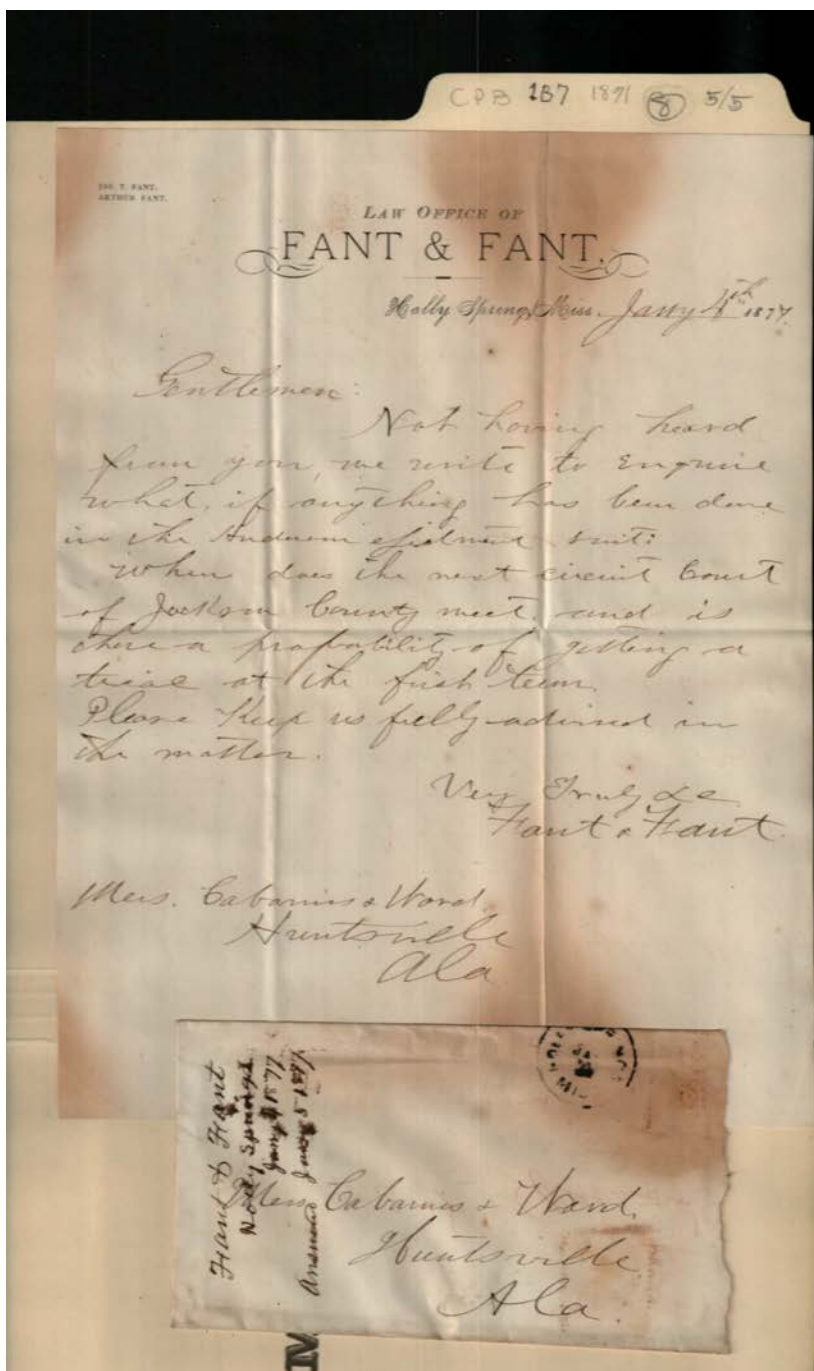 CPB 1B7 1871 8 5/5
JAS. T. FANT.
ARTHUR FANT.
LAW OFFICE OF
FANT & FANT.
Holly Springs, Miss. Jany 4th 1877.
Gentlemen:
Not having heard
from you, we write to Enquire
what, if anything has been done
in the Anderson ejectment suit:
When does the next circuit Court
of Jackson County meet, and is
there a probability of getting a
trial at the first term.
Please Keep us fully advised in
the matter.
Very Truly &c
Fant & Fant.
Mess. Cabaniss & Ward
Huntsville
Ala
Fant & Fant
Holly Springs
Jany 4 1877
Answered Jany
Mess Cabaniss & Ward,
Huntsville
Ala.